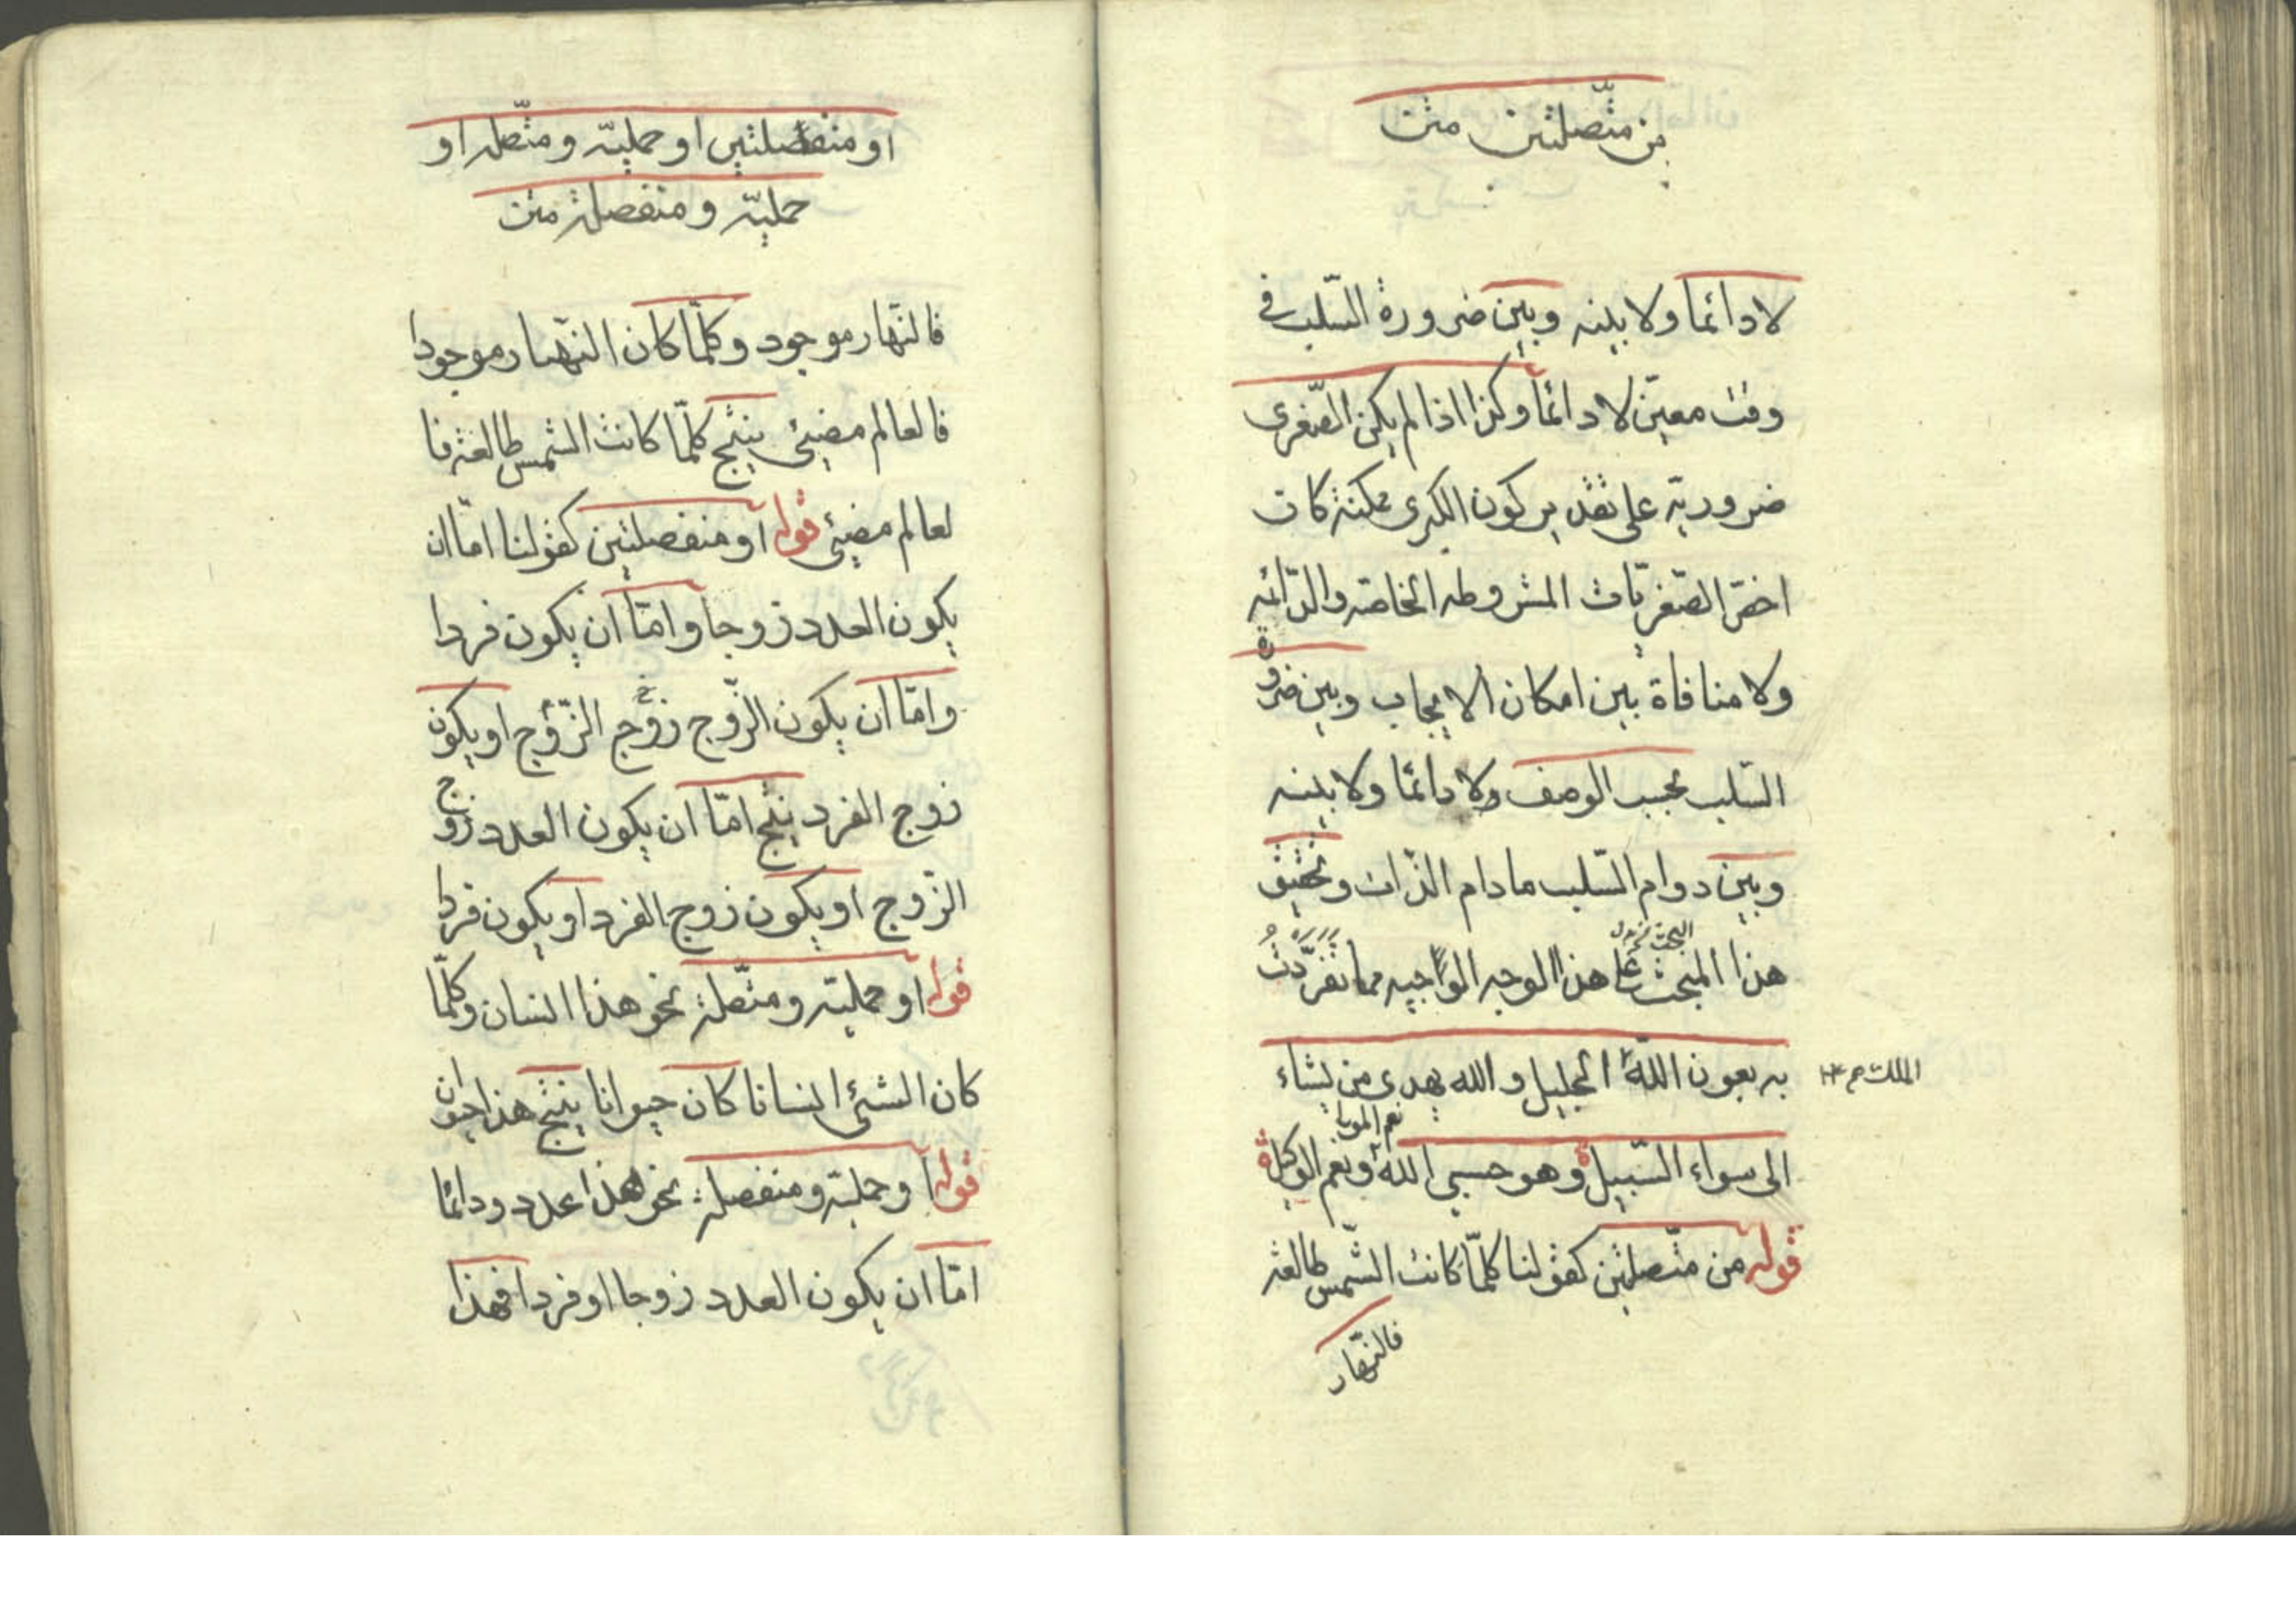 من متّصلتين متن
لا دائما ولا بينه وبين ضرورة السّلب في
وقت معيّن لا دائما وكذا اذا لم يكن الصّغرى
ضروريّة على تقدير كون الكبرى ممكنة كان
اخصّ الصّغريّات المشروطه الخاصّه والدّائمه
ولا منافاة بين امكان الايجاب وبين ضرورة
السّلب بحسب الوصف ولا دائما ولا بينه
وبين دوام السّلب مادام الذّات وتحقيق
البحث
هذا المبحث على هذا الوجه الواجيه مما تفرّدتُ
به بعون اللّه الجليل والله يهدى من يشاء
الملك
نعم المولى
الى سواء السّبيل وهو حسبى اللّه ونعم الوكيل
قوله من متّصلتين كقولنا كلّما كانت الشّمس طالعة
فالنّهار
او منفصلتين او حمليّة ومتّصله او
حمليّة ومنفصلة متن
فالنّهار موجود وكلّما كان النّهار موجودا
فالعالم مضيئ ينتج كلّما كانت الشمس طالعة فا
لعالم مضيئ قوله او منفصلتين كقولنا امّا ان
يكون العدد زوجا وامّا ان يكون فردا
وامّا ان يكون الزّوج زوج الزّوج او يكون
زوج الفرد ينتج امّا ان يكون العدد زوج
الزّوج او يكون زوج الفرد او يكون فردا
قوله او حمليّة ومتّصلة نحو هذا انسان وكلّما
كان الشئ انسانا كان حيوانا ينتج هذا حيوان
قوله او حمليّة ومنفصلة نحو هذا عدد ودائما
امّا ان يكون العدد زوجا او فردا فهذا